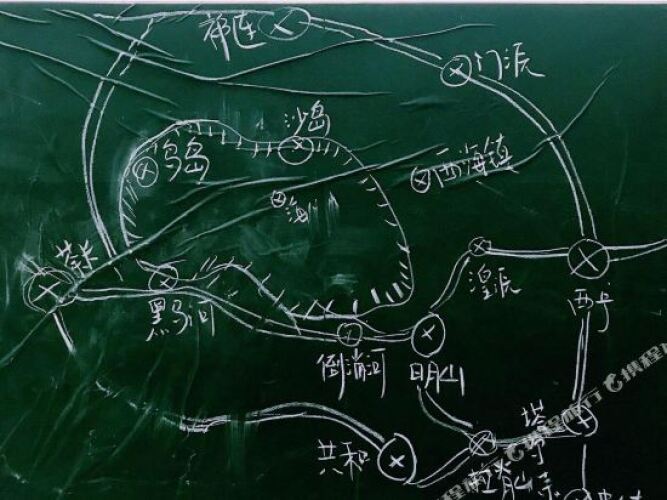 祁连
门派
沙岛
鸟岛
西海镇
海
茶卡
湟派
黑马河
西宁
倒淌河
日月山
塔
共和
拉脊山
携程旅行